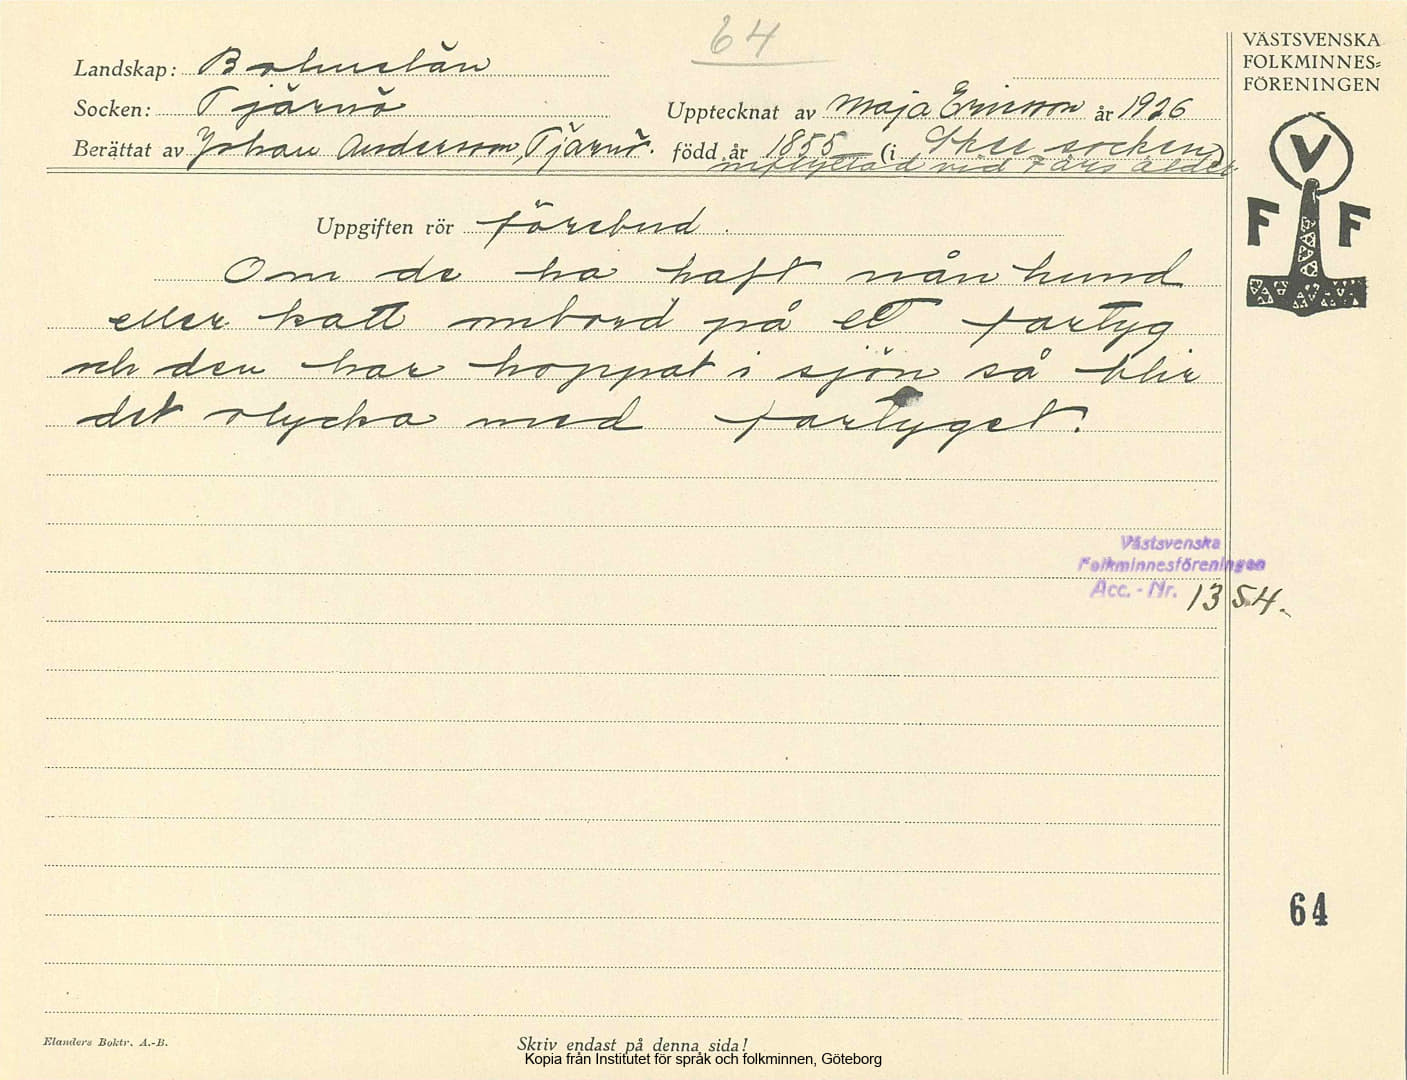 64
VÄSTSVENSKA
FOLKMINNES=
FÖRENINGEN
Landskap: Bohuslän
Socken: Tjärnö
Upptecknat av Maja Ericsson år 1926
Berättat av Johan Andersson, Tjärnö. född år 1855 (i Skee socken)
inflyttad vid 7 års ålder
V
F F
Uppgiften rör förebud.
Om de ha haft nån hund
eller katt ombord på ett fartyg
och den har hoppat i sjön så blir
det olycka med fartyget.
Västsvenska
Folkminnesföreningen
Acc. - Nr. 1354.
64
Elanders Boktr. A.-B.
Skriv endast på denna sida!
Kopia från Institutet för språk och folkminnen, Göteborg